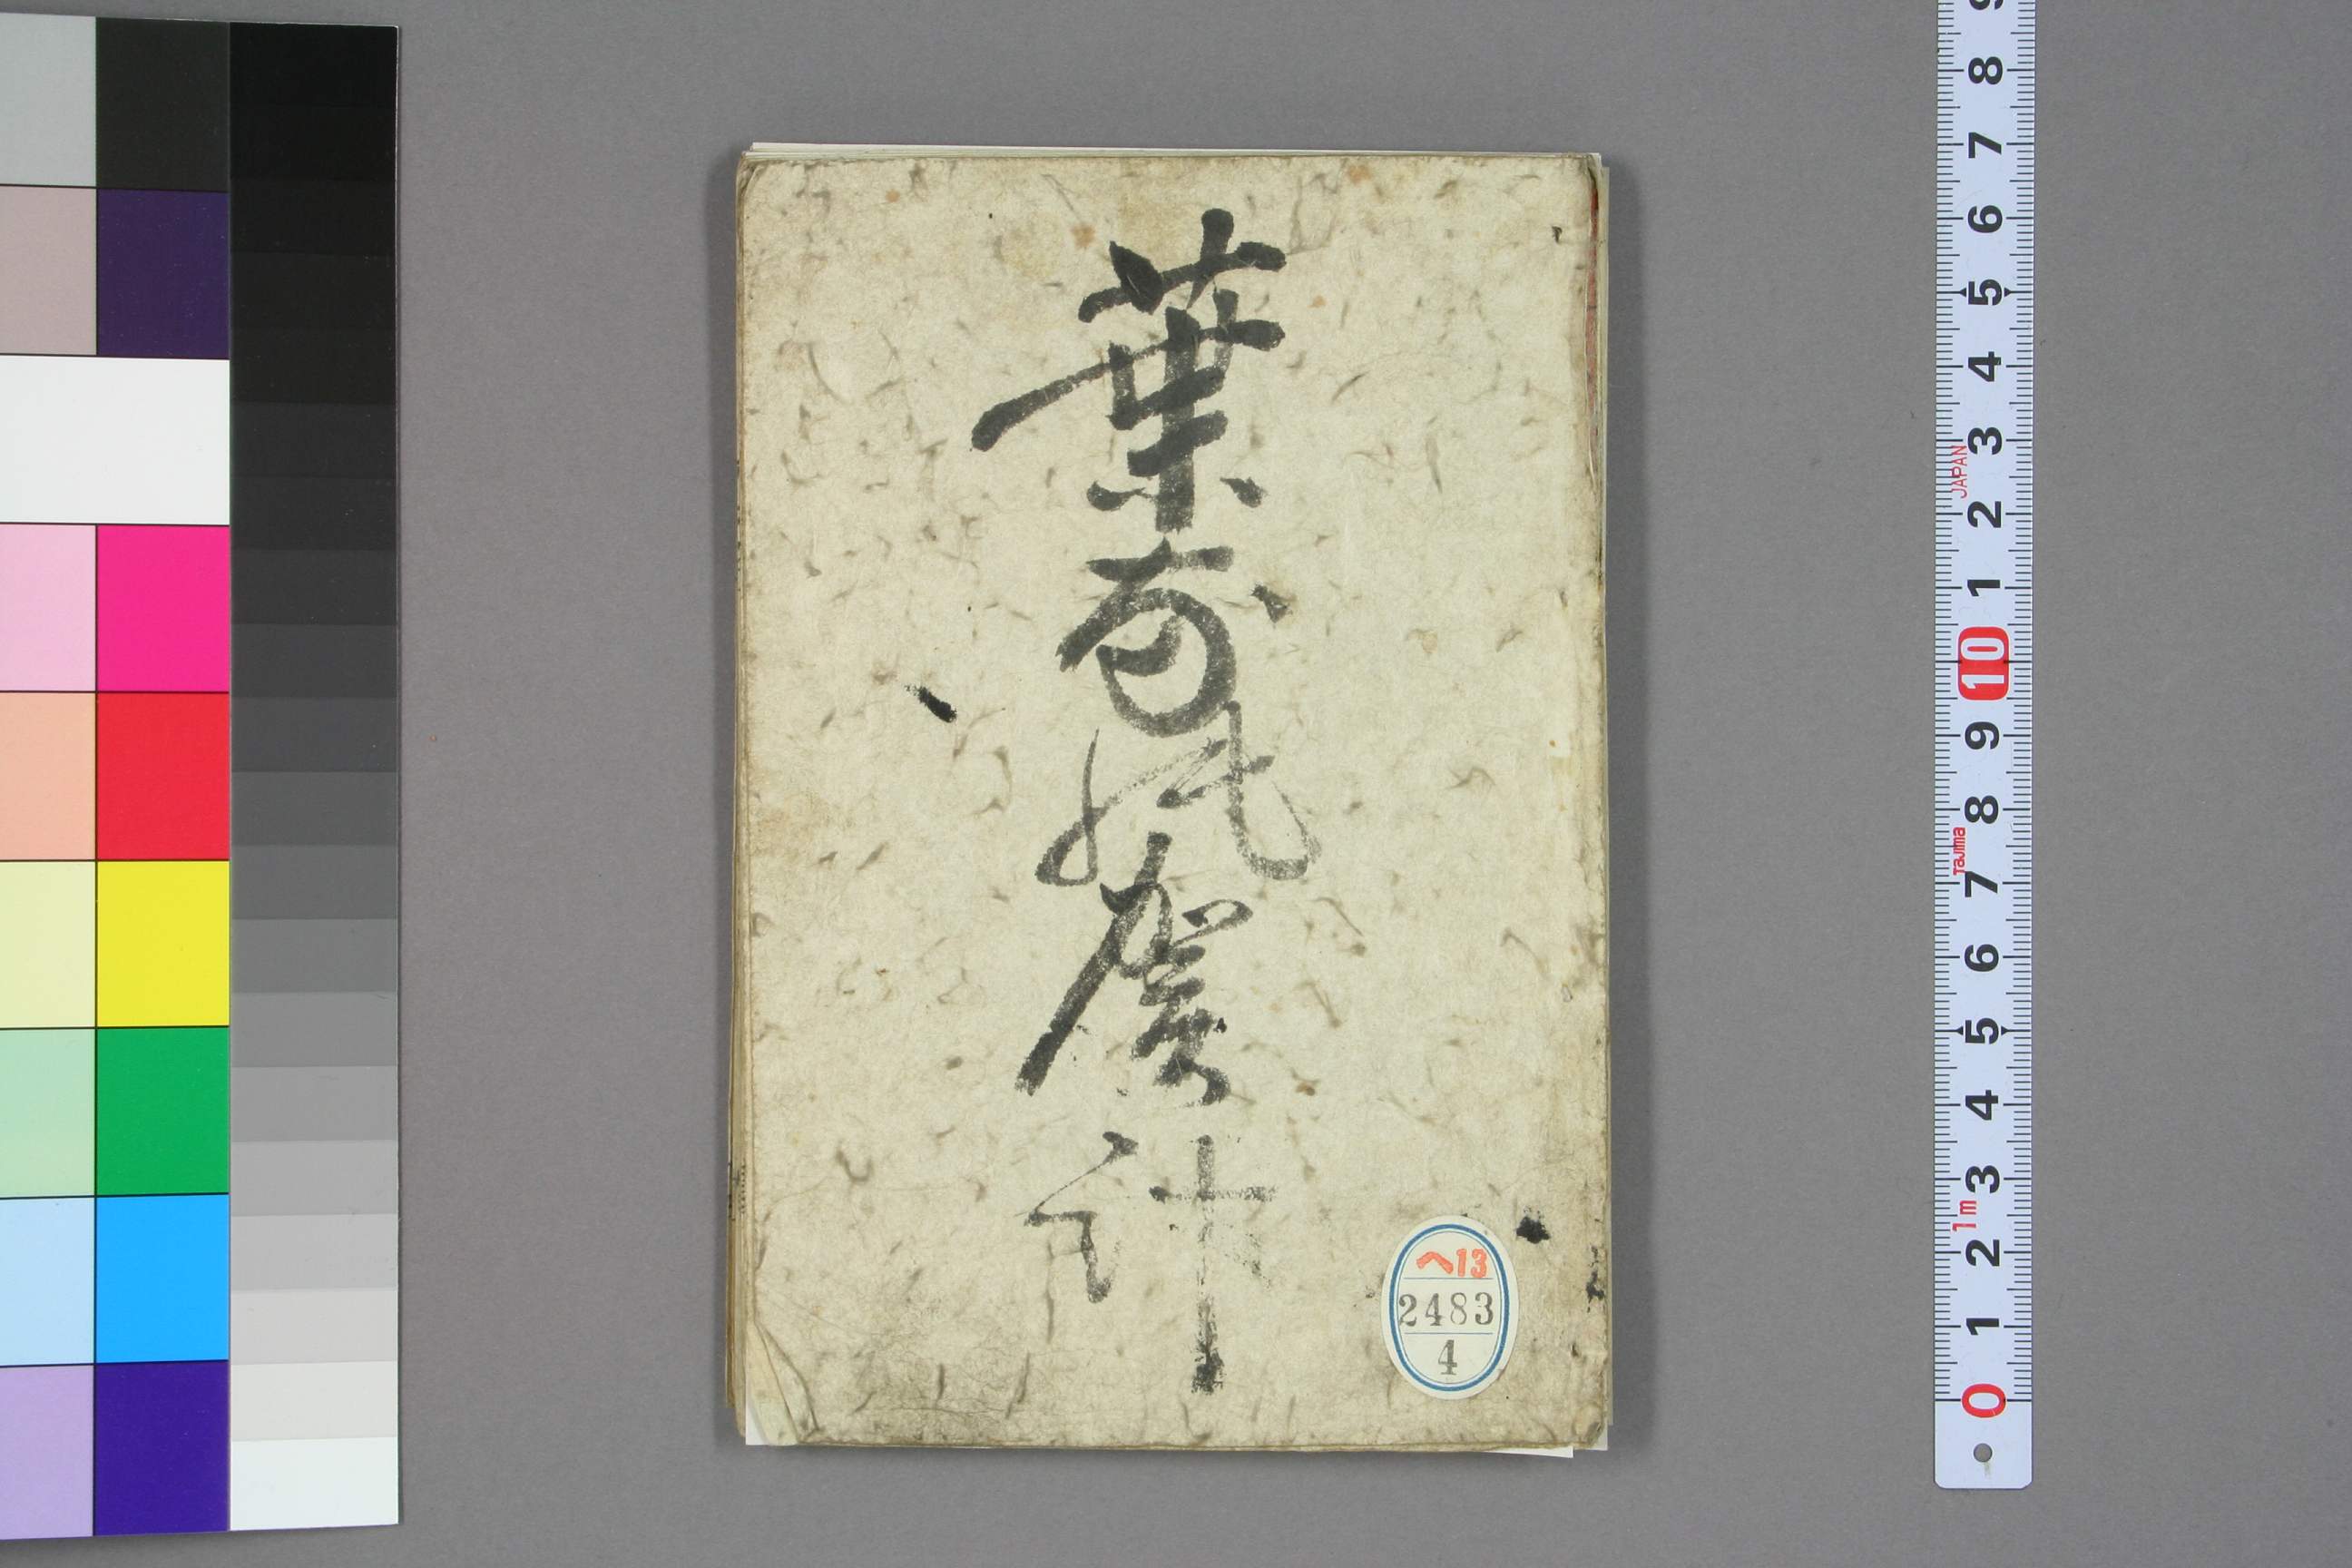 葉奈能賀計
ヘ13
2483
4
9
8
7
6
5
4
3
JAPAN
2
1
10
9
8
Tajima
7
6
5
4
3
1m
2
1
0